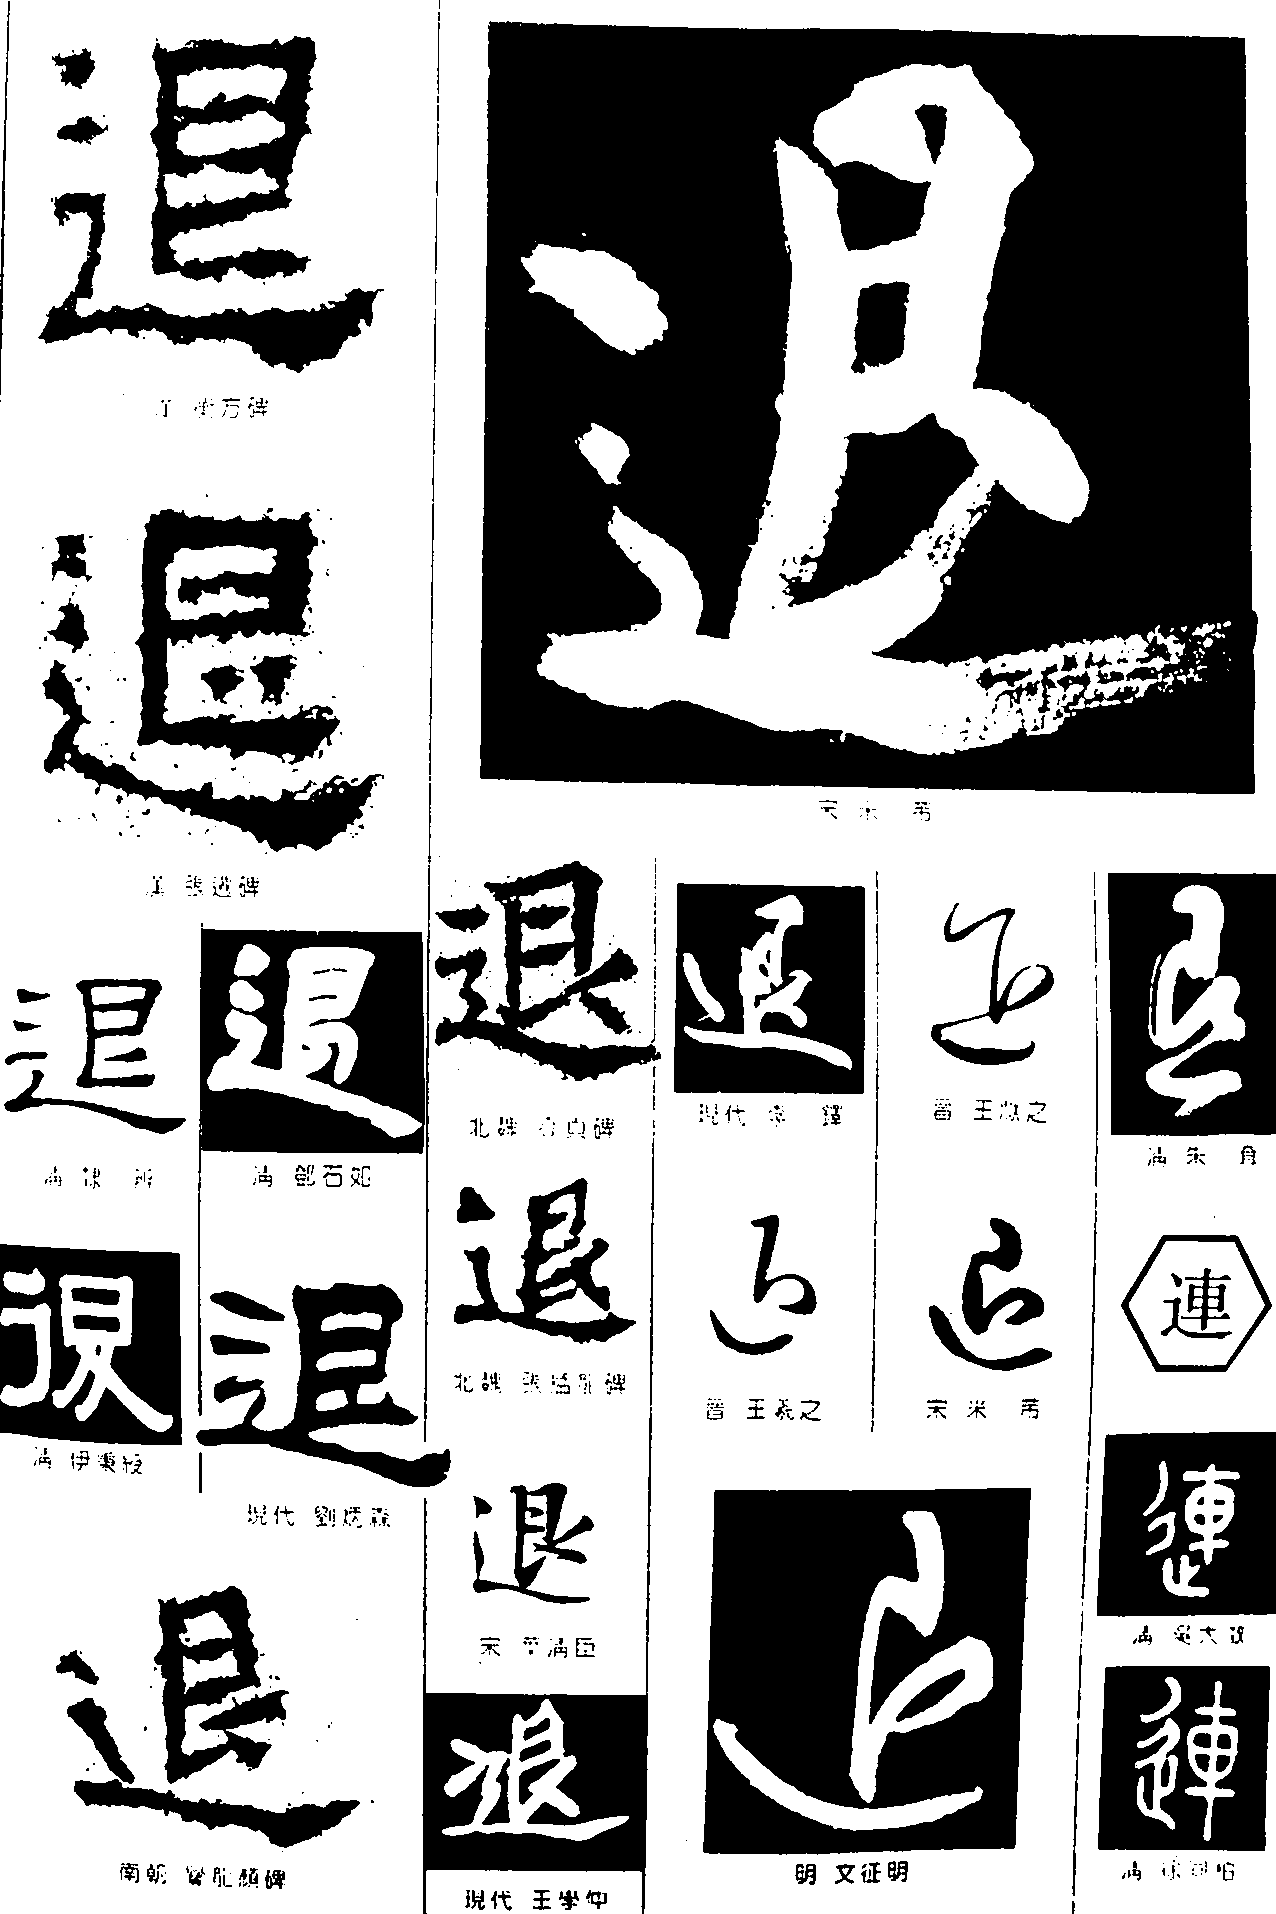 退
衡方碑
退
宋 米 芾
漢 張遷碑
退
退
退
退
退
退
清 鄧石如
北魏 碑
現代 李 鐸
晉 王獻之
清 朱 耷
退
退
退
退
退
連
清 伊秉綬
北魏 張猛龍碑
晉 王羲之
宋 米 芾
現代 劉炳森
退
退
連
宋 黃滿臣
清 吳大澂
退
退
連
南朝 爨龍顏碑
現代 王學仲
明 文征明
清 徐